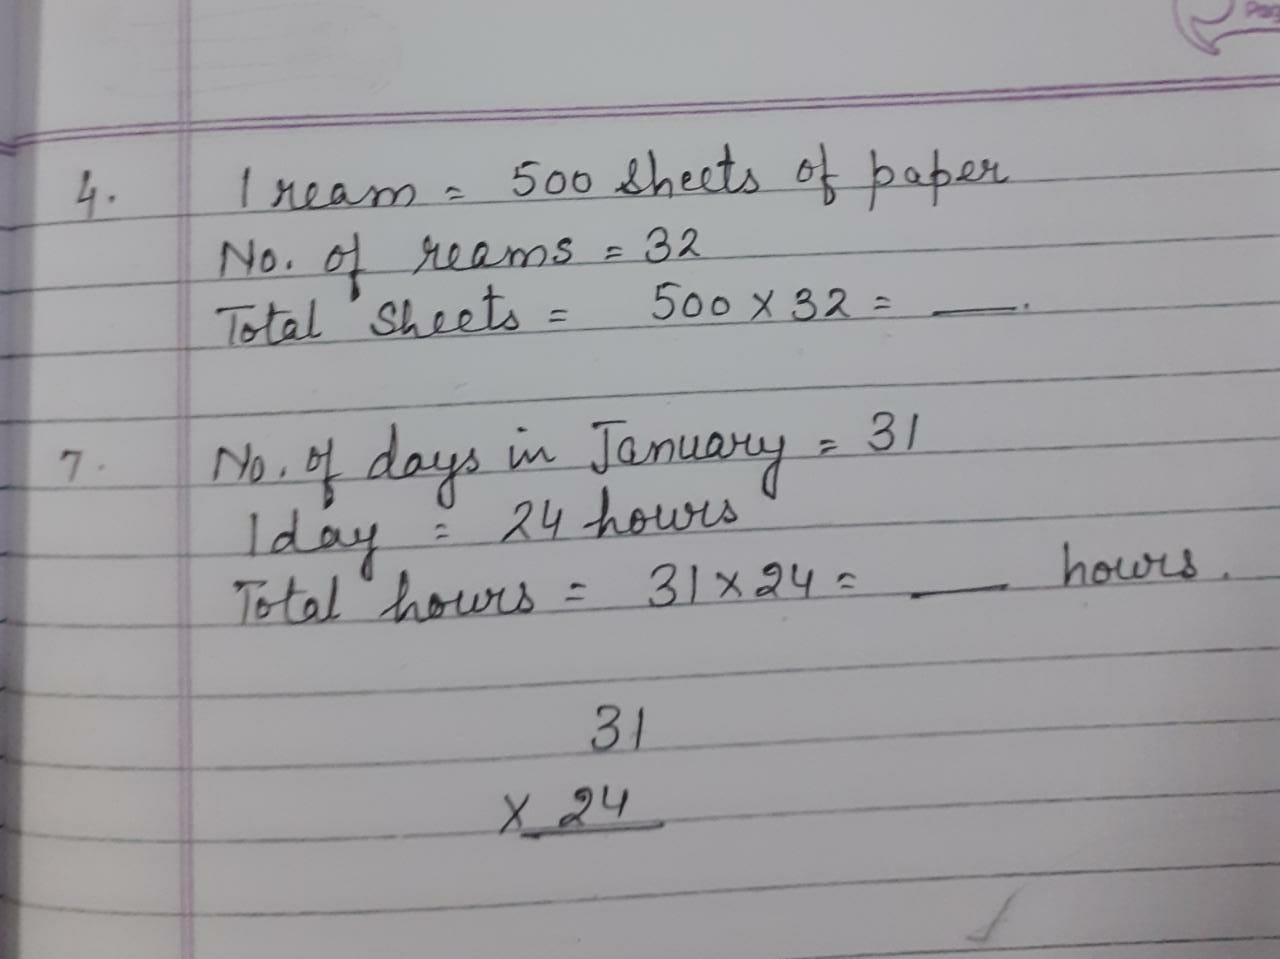 4. 1 ream = 500 sheets of paper
No. of reams = 32
Total sheets = 500 x 32 = ___.
7. No. of days in January = 31
1 day = 24 hours
Total hours = 31 x 24 = ___ hours.
31
x 24